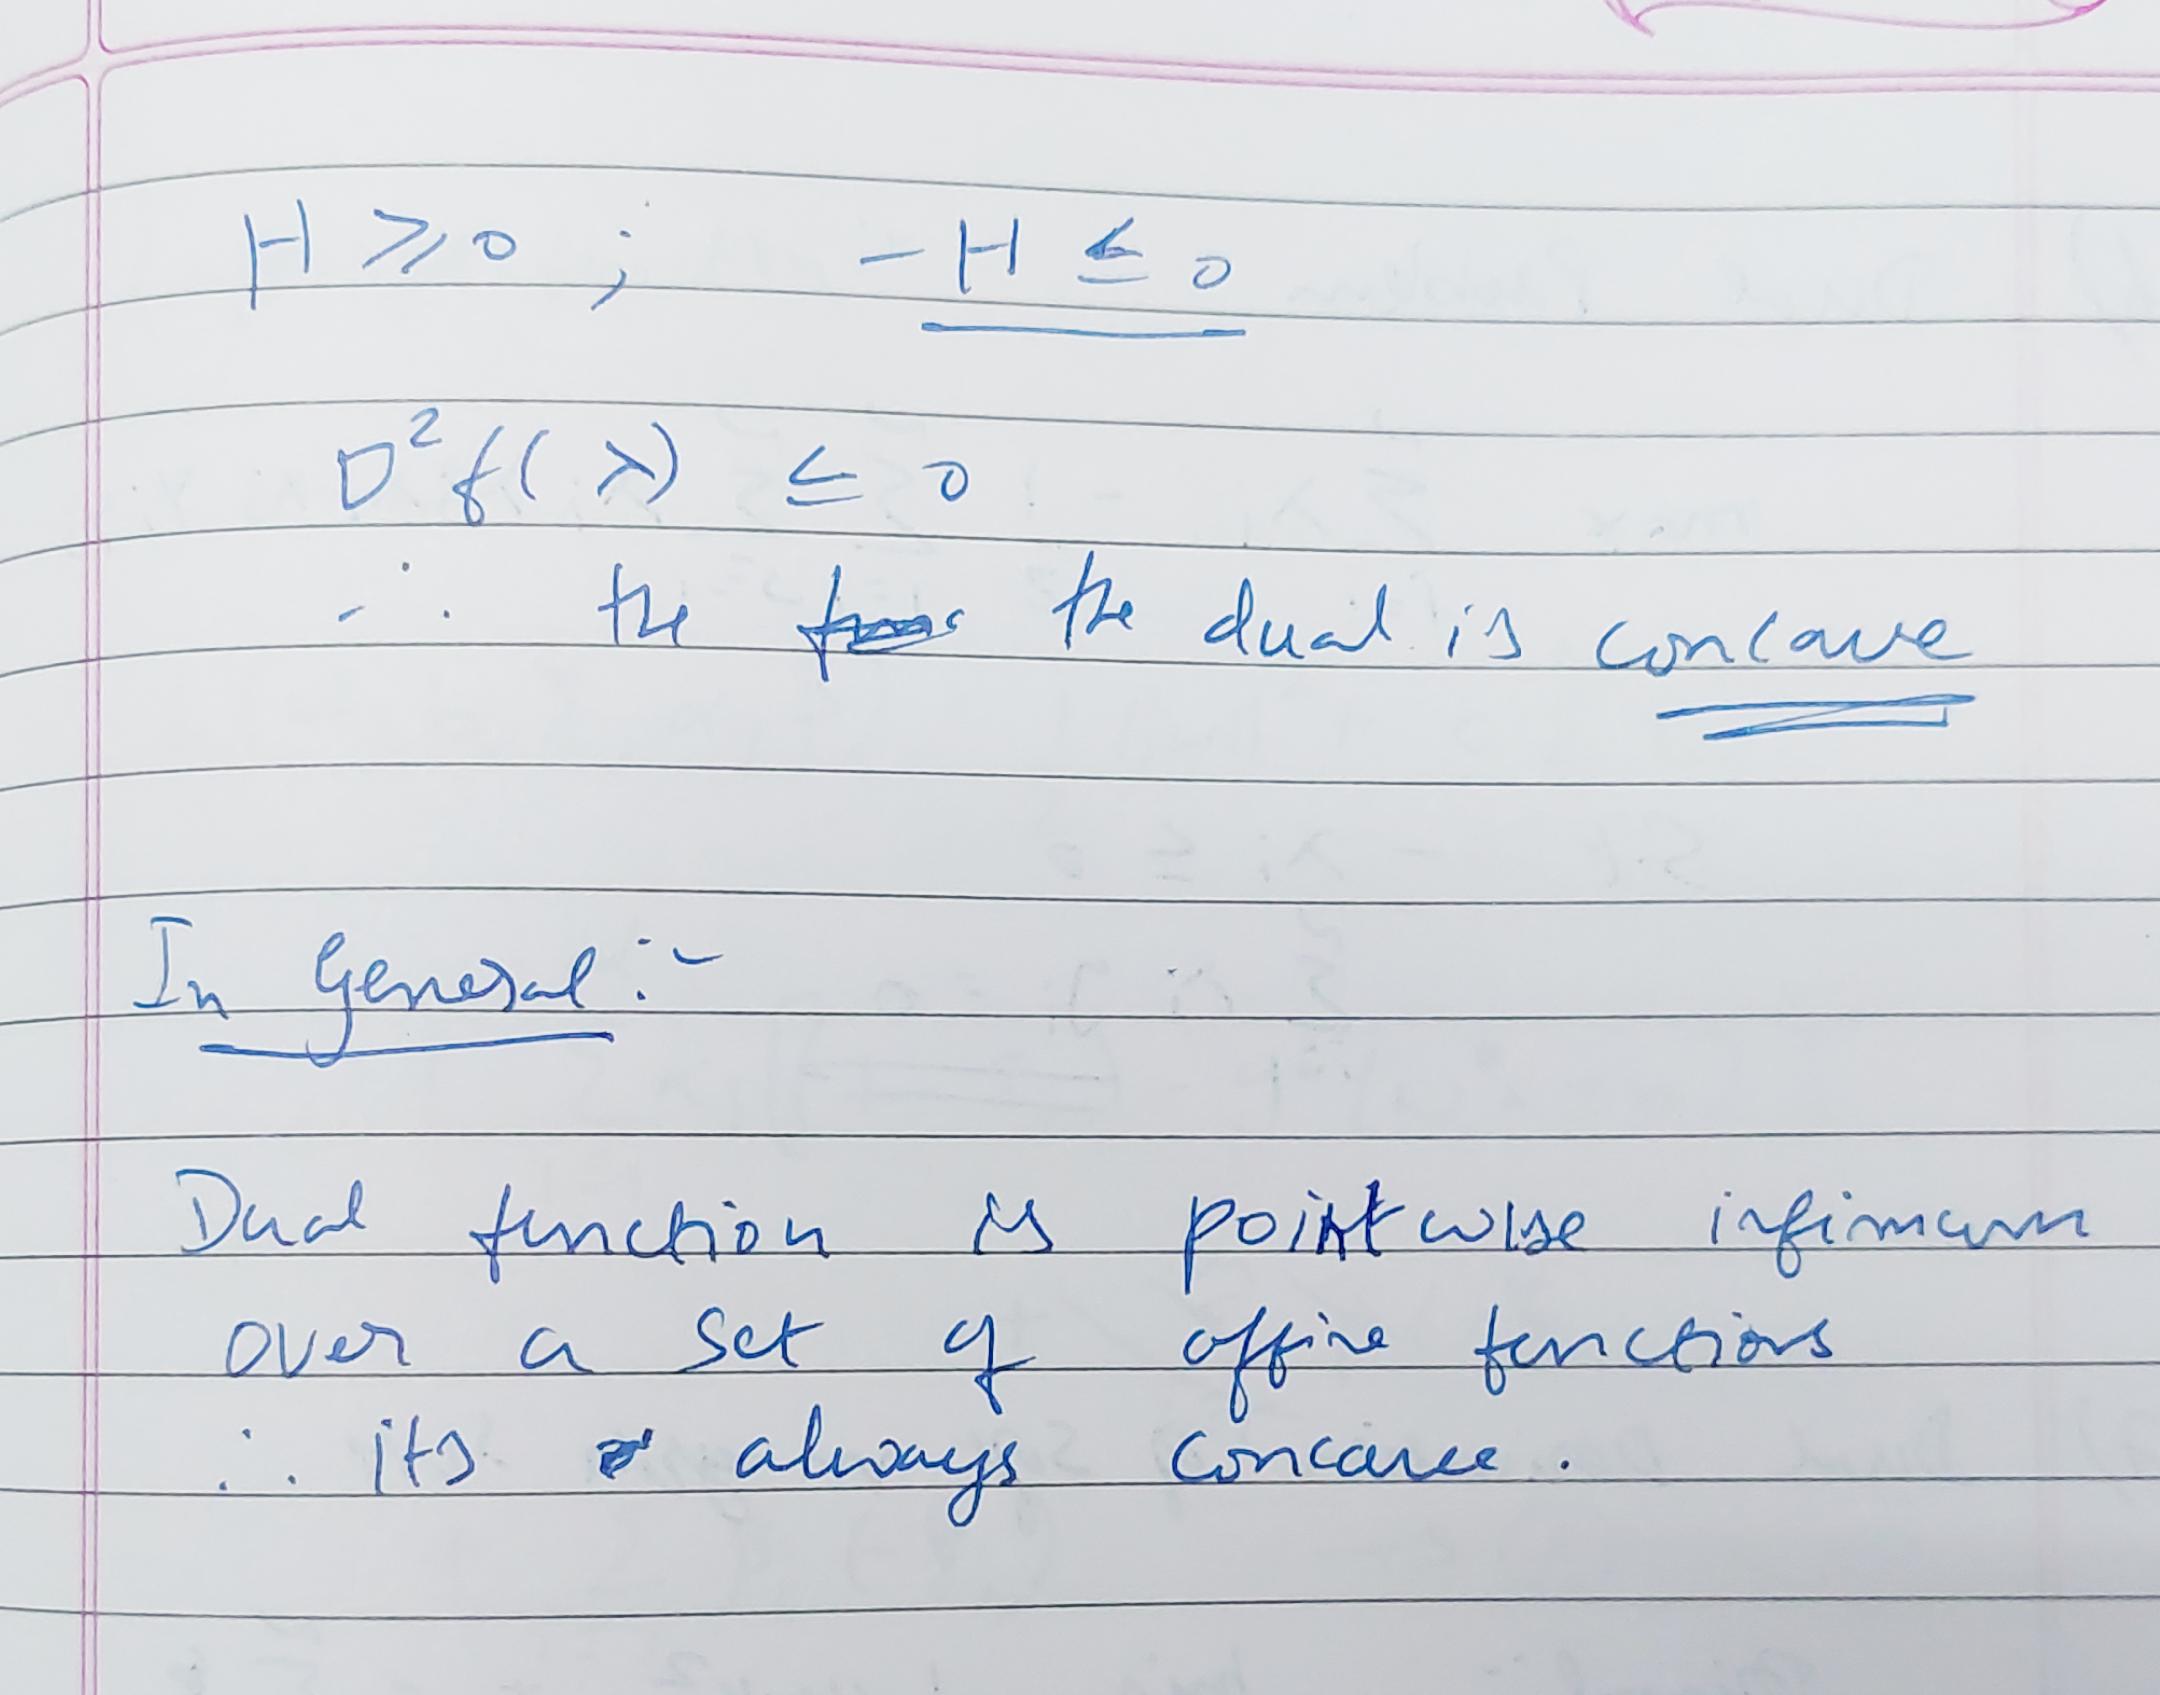 H ⩾ 0 ; - H ≤ 0
D² f(λ) ≤ 0
∴ the the dual is concave
In General :-
Dual function is pointwise infimum
over a set of affine functions
∴ its always concave.